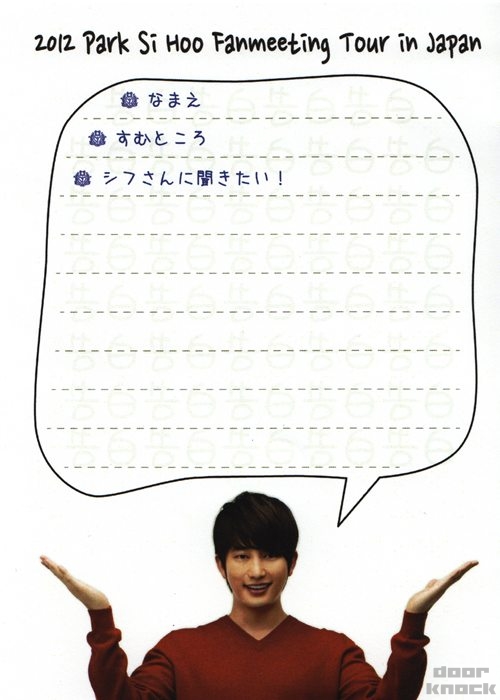 2012 Park Si Hoo Fanmeeting Tour in Japan
なまえ
すむところ
シフさんに聞きたい！
door
knock